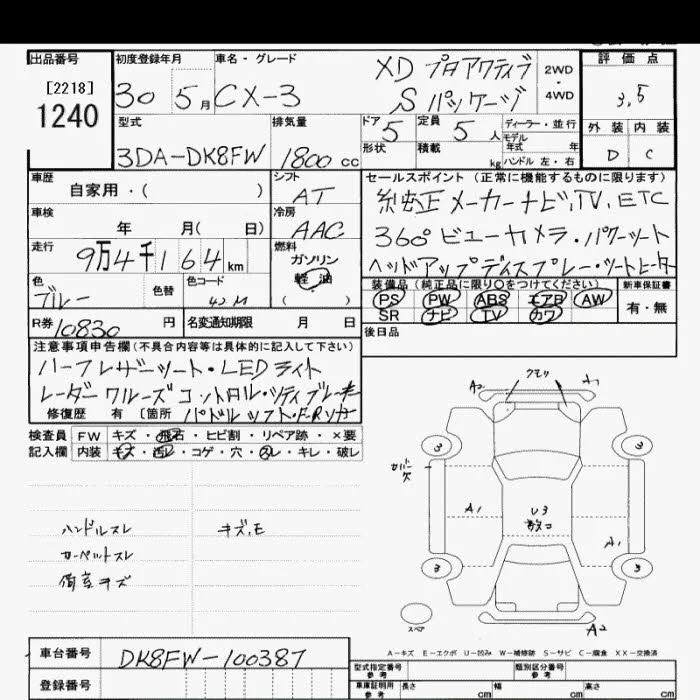 出品番号 初度登録年月 車名・グレード 評価点
[2218]
1240
30 5月 CX-3 XD プロアクティブ 2WD
Sパッケージ ・4WD
3.5
外装 内装
D C
型式 排気量 ドア 定員 ディーラー・並行
3DA-DK8FW 1800cc 5 5人 モデル年式 年
形状 積載 kg ハンドル 左・右
車歴 シフト セールスポイント(正常に機能するものに限ります)
自家用・( ) AT 純正メーカーナビ,TV,ETC
車検 冷房
年 月( 日) AAC 360°ビューカメラ・パワーシート
走行 燃料
9万4千164km ガソリン ヘッドアップディスプレー・シートヒーター
軽油
( )
色 色替 色コード 装備品(純正品に限り○をつけてください) 新車保証書
ブルー 42M PS PW ABS エアB AW 有・無
SR ナビ TV カワ
R券 10830円 名変通知期限 月 日 後日品
注意事項申告欄(不具合内容等は具体的に記入して下さい)
ハーフレザーシート・LEDライト
レーダークルーズコントロル・シティブレーキ
修復歴 有 [箇所 パドルシフト・F.Rソナー
検査員 FW キズ・飛石・ヒビ割・リペア跡・×要
記入欄 内装 キズ・汚レ・コゲ・穴・スレ・キレ・破レ
ハンドルスレ キズ,モ
カーペットスレ
荷室キズ
A2 クモリ A1
3 3
A1 U3
A1
3 3
スペア A2
A-キズ E-エクボ U-凹み W-補修跡 S-サビ C-腐食 XX-交換済
車台番号 DK8FW-100387
登録番号
型式指定番号 参考 類別区分番号 参考
車庫証明用 参考 長さ cm 幅 cm 高さ cm